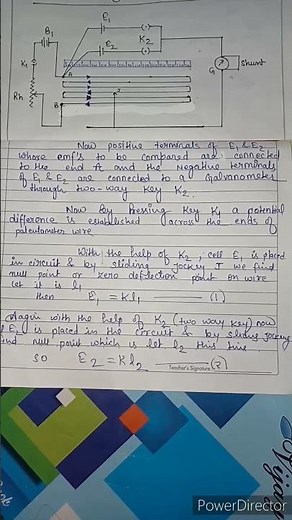 E1
B1
K2
E2
K1
A
G
Shunt
Rh
J
B
Now positive terminals of E1 & E2
whose emf's to be compared are connected
to the end A and the Negative terminals
of E1 & E2 are connected to a Galvanometer
through two-way key K2.
Now By Pressing Key K1 a potential
difference is established across the ends of
potentiometer wire
With the help of K2, cell E1 is placed
in circuit & by sliding Jockey J we find
null point or zero deflection point on wire
Let it is l1
then E1 = Kl1 (1)
Again with the help of K2 (two way key) now
E2 is placed in the circuit & by sliding jockey
find null point which is let l2 this time
so E2 = Kl2 (2)
Teacher's Signature
PowerDirector